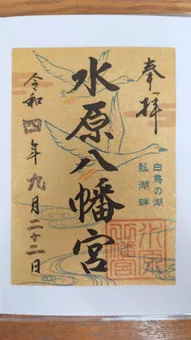 奉拝
白鳥の湖
瓢湖畔
水原八幡宮
令和四年九月二十二日